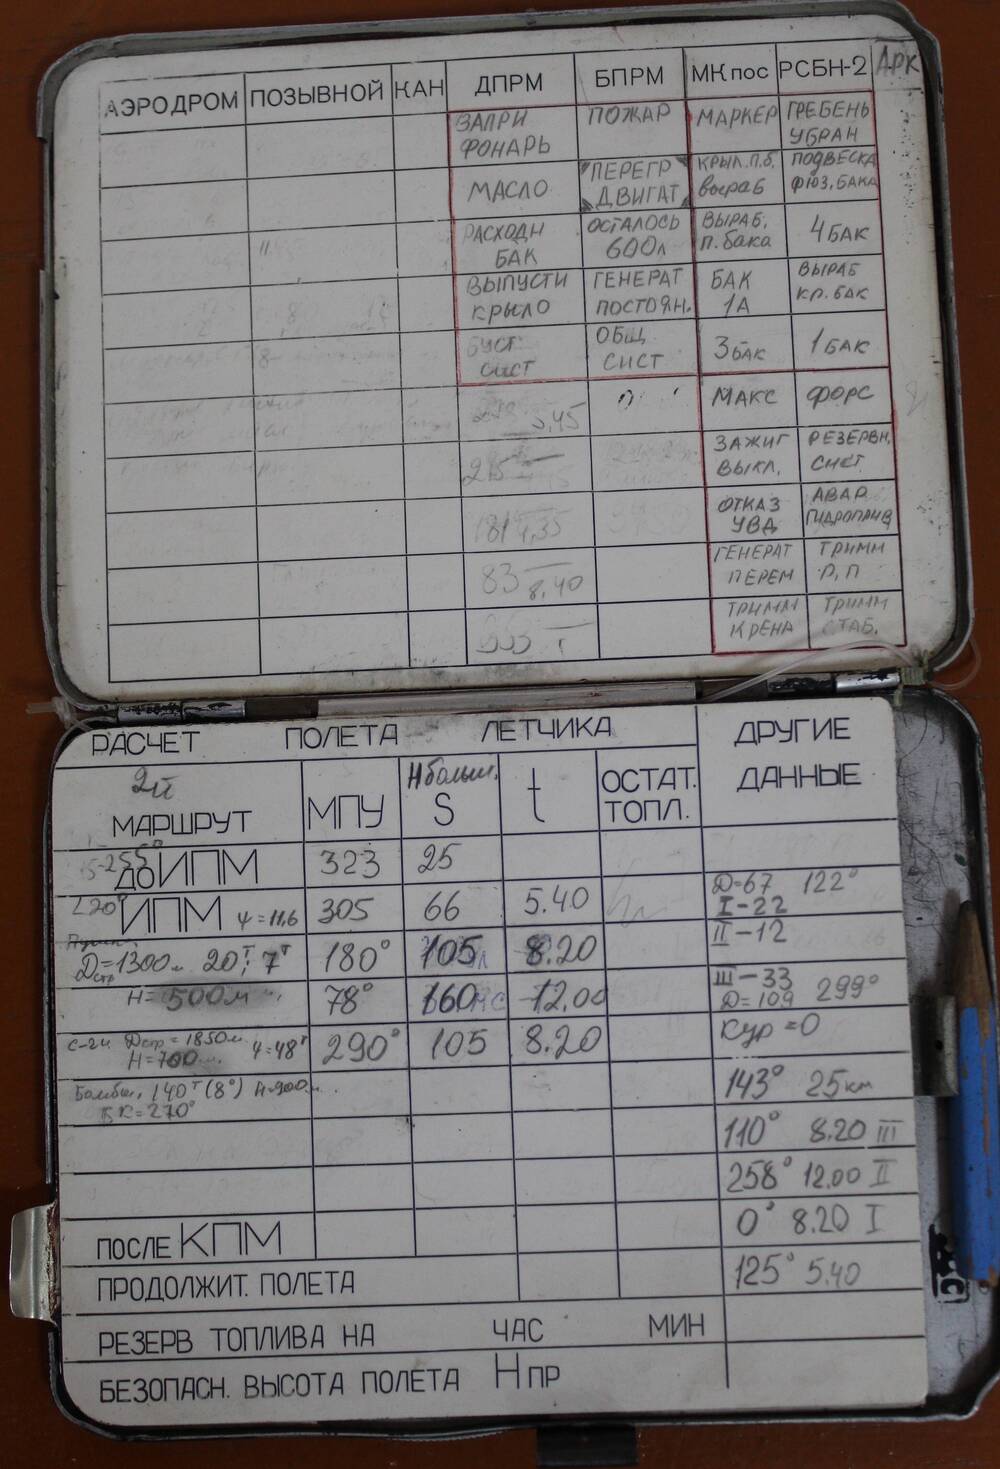 АЭРОДРОМ ПОЗЫВНОЙ КАН ДПРМ БПРМ МКпос РСБН-2 АРК
ЗАПРИ ПОЖАР МАРКЕР ГРЕБЕНЬ
ФОНАРЬ УБРАН
МАСЛО ПЕРЕГР КРЫЛ.П.Б. ПОДВЕСКА
ДВИГАТ выраб ФЮЗ.БАКА
РАСХОДН ОСТАЛОСЬ ВЫРАБ. 4 БАК
БАК 600л п.бака
ВЫПУСТИ ГЕНЕРАТ БАК ВЫРАБ
КРЫЛО ПОСТОЯН. 1А КР.БАК
БУСТ ОБЩ 3 БАК 1 БАК
СИСТ СИСТ
5,45 МАКС ФОРС
215 ЗАЖИГ РЕЗЕРВН.
ВЫКЛ. СИСТ.
181 4,35 ОТКАЗ АВАР.
УВД
83 8,40 ГЕНЕРАТ ТРИММ
ПЕРЕМ Р,П
353 ТРИММ ТРИММ
КРЕНА СТАБ.
РАСЧЕТ ПОЛЕТА ЛЕТЧИКА ДРУГИЕ
ДАННЫЕ
2й Нбольш.
МАРШРУТ МПУ S t ОСТАТ.
ТОПЛ.
ДО ИПМ 323 25
ИПМ Ψ=11,6 305 66 5.40 Д=67 122°
I-22
Дстр=1300м 20т; 7т 180° 105 8.20 II-12
Н=500м 78° 160 12,00 III-33
Д=109 299°
с-24 Дстр=1850м. Ψ=48т 290° 105 8.20 Кур=0
Н=700м.
140т (8°) Н=900м. 143° 25км
БК=270°
110° 8.20 III
258° 12.00 II
ПОСЛЕ КПМ 0° 8.20 I
ПРОДОЛЖИТ. ПОЛЕТА 125° 5.40
РЕЗЕРВ ТОПЛИВА НА ЧАС МИН
БЕЗОПАСН. ВЫСОТА ПОЛЕТА Н ПР